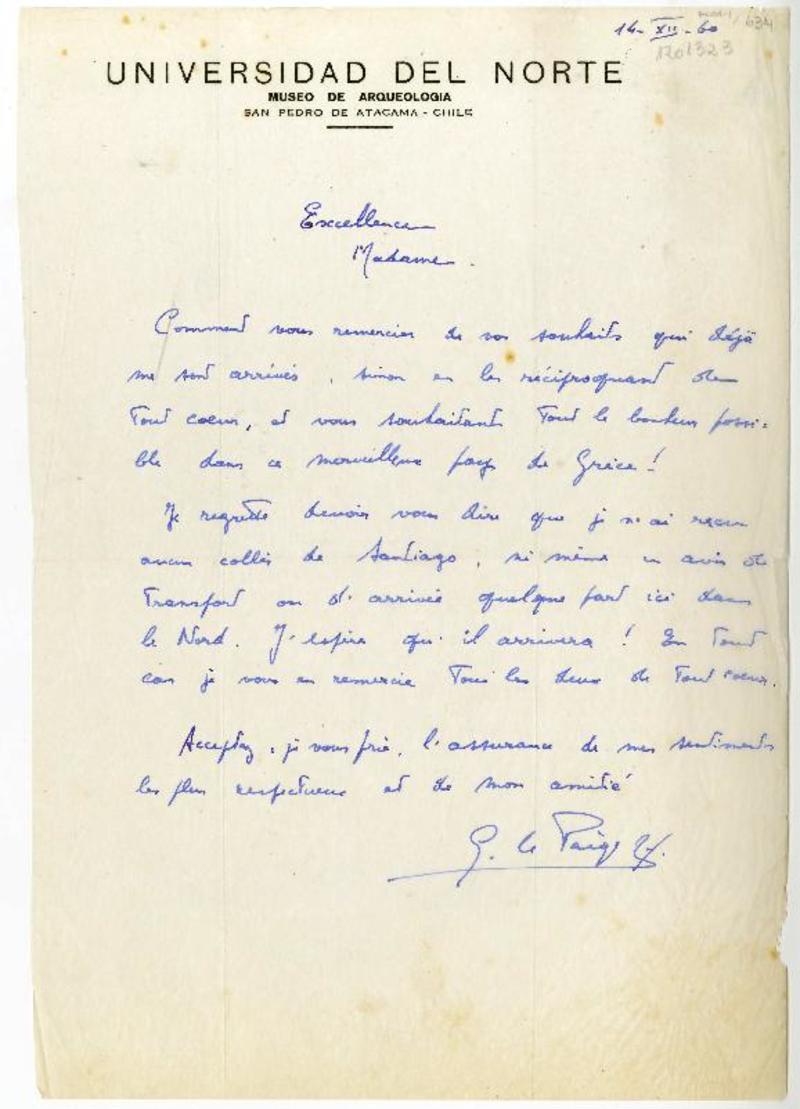 14-XII-60
634
1201323
UNIVERSIDAD DEL NORTE
MUSEO DE ARQUEOLOGIA
SAN PEDRO DE ATACAMA - CHILE
Excellence
Madame.
Comment vous remercier de vos souhaits qui déjà
me sont arrivés, sinon en les réciproquant de
Tout coeur, et vous souhaitant Tout le bonheur possi-
ble dans ce merveilleux pays de Grèce!
Je regrette devoir vous dire que je n'ai reçu
aucun collis de Santiago, ni même un avis de
Transport ou d'arrivée quelque part ici dans
le Nord. J'espère qu'il arrivera! En Tout
cas je vous en remercie Tous les deux de Tout coeur.
Acceptez, je vous prie, l'assurance de mes sentiments
les plus respectueux et de mon amitié
G. le Paige